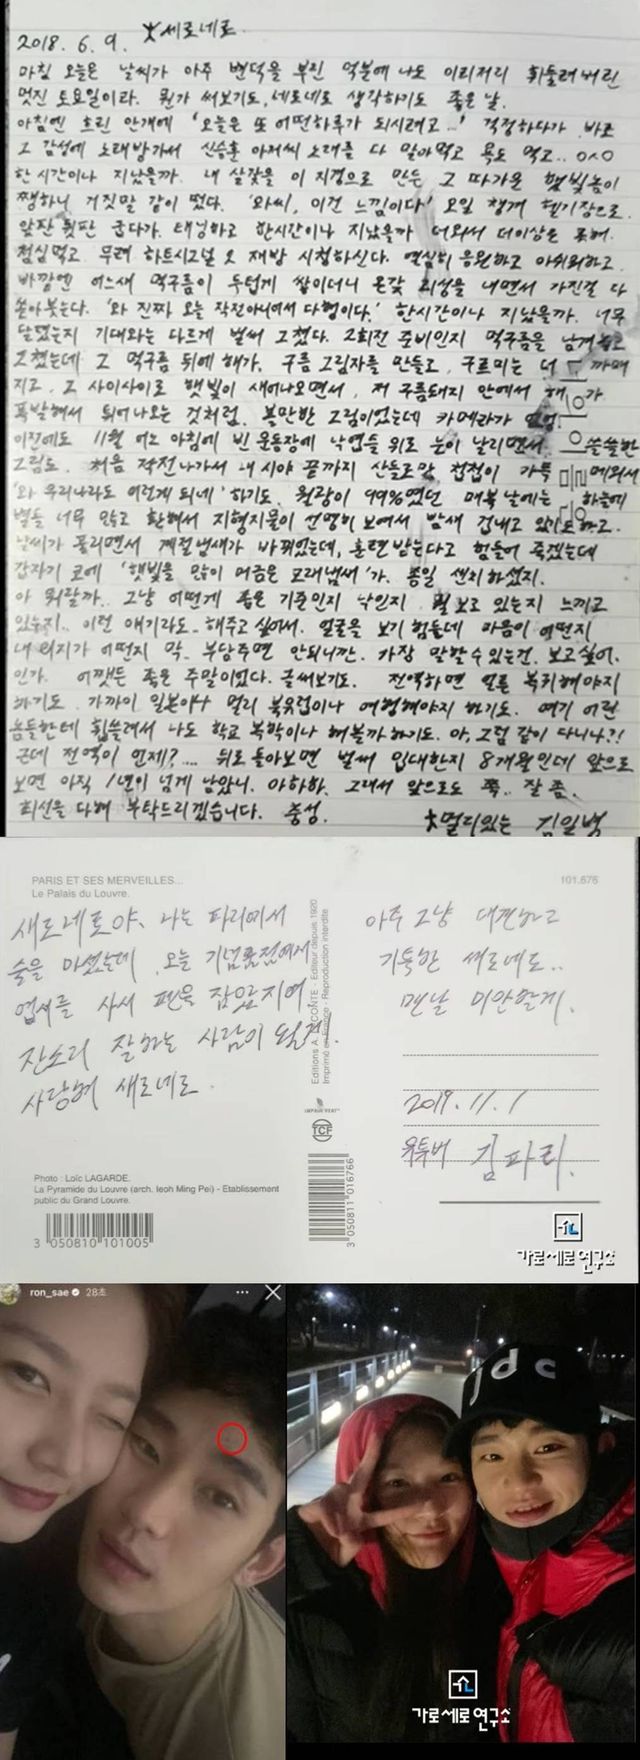 2018. 6. 9. ★세로네로
마침 오늘은 날씨가 아주 변덕을 부린 덕분에 나도 이리저리 휘둘려버린
멋진 토요일이라. 뭔가 써보기도, 세로네로 생각하기도 좋은 날.
아침엔 흐린 안개에 '오늘은 또 어떤하루가 되시려고..' 걱정하다가 바로
그 감성에 노래방가서 신승훈 아저씨 노래를 다 말아먹고 욕도 먹고.. ㅇㅅㅇ
한시간이나 지났을까. 내 살갗을 이 지경으로 만든 그 따가운 햇빛놈이
쨍하니 거짓말 같이 떴다. '와씨, 이건 느낌이다' 오일 챙겨 헬기장으로.
앞판 뒷판 굽다가. 태닝하고 한시간이나 지났을까 더워서 더이상은 못해.
점심먹고 무려 하트시그널 2 재방 시청하신다. 열심히 응원하고 아쉬워하고.
바깥엔 어느새 먹구름이 두텁게 쌓이더니 온갖 괴성을 내면서 가진걸 다
쏟아붓는다. '와 진짜 오늘 작전아니어서 다행이다.' 한시간이나 지났을까. 너무
달랬는지 기대와는 다르게 벌써 그쳤다. 2회전 준비인지 먹구름을 남겨놓고
그쳤는데 그 먹구름 뒤에 해가. 구름 그림자를 만들고, 구르미는 더 까매
지고, 그 사이사이로 햇빛이 새어나오면서, 저 구름돼지 안에서 해가
폭발해서 튀어나오는 것처럼. 볼만한 그림이었는데 카메라가 없어
이전에도 11월 어느 아침에 빈 운동장에 낙엽들 위로 눈이 날리면서 쓸쓸한
그림도. 처음 작전나가서 내 시야 끝까지 산들로만 첩첩이 가득 메워서
'와 우리나라도 이렇게 되네' 하기도. 월광이 99%였던 매복 날에는 하늘에
별들 너무 많고 환해서 지형지물이 선명히 보여서 밤새 겁내고 있기도하고.
날씨가 풀리면서 계절냄새가 바뀌었는데, 훈련받는다고 힘들어 죽겠는데
갑자기 코에 '햇빛을 많이 머금은 모래냄새'가. 종일 센치하셨지.
아 뭐랄까.. 그냥 어떤게 좋은 기준인지 낙인지 뭘 보고 있는지 느끼고
있는지.. 이런 얘기라도.. 해주고 싶어서. 얼굴을 보기 힘들데 마음이 어떤지
내 의지가 어떤지 막.. 부담주면 안되니깐. 가장 말할수 있는건. 보고싶어.
인가. 어쨌든 좋은 주말이었다. 글써보기도. 전역하면 얼른 복귀해야지
하기도. 가까이 일본이나 멀리 북유럽이나 여행해야지 하기도. 여기 어린
놈들한테 휩쓸려서 나도 학교 복학이나 해볼까하기도. 아, 그럼 같이 다니나?!
근데 전역이 언제?.... 뒤로 돌아보면 벌써 입대한지 8개월인데 앞으로
보면 아직 1년이 넘게 남았니. 아하하. 그래서 앞으로도 쭉.. 잘 좀.
최선을 다해 부탁드리겠습니다. 충성.
★멀리있는 김일병
고 김새론
PARIS ET SES MERVEILLES...
Le Palais du Louvre.
101.676
새로네로야, 나는 파리에서
술을 마셨는데, 오늘 기념품점에서
엽서를 사서 펜을 잡았지여
잔소리 잘하는 사람이 될게.
사랑해 새로네로.
Editions A. LECONTE - Editeur depuis 1920
Imprimé en France - Reproduction interdite
IMPRIM'VERT
TCF
3 050811 016766
아주 그냥 대견하고
기특한 쌔로네로..
맨날 미안할게.
2019. 11. 1
유튜버 김파리.
Photo : Loïc LAGARDE.
La Pyramide du Louvre (arch. Ieoh Ming Pei) - Etablissement
public du Grand Louvre.
3 050810 101005
가로세로연구소
ron_sae 28초
jdc
가로세로연구소